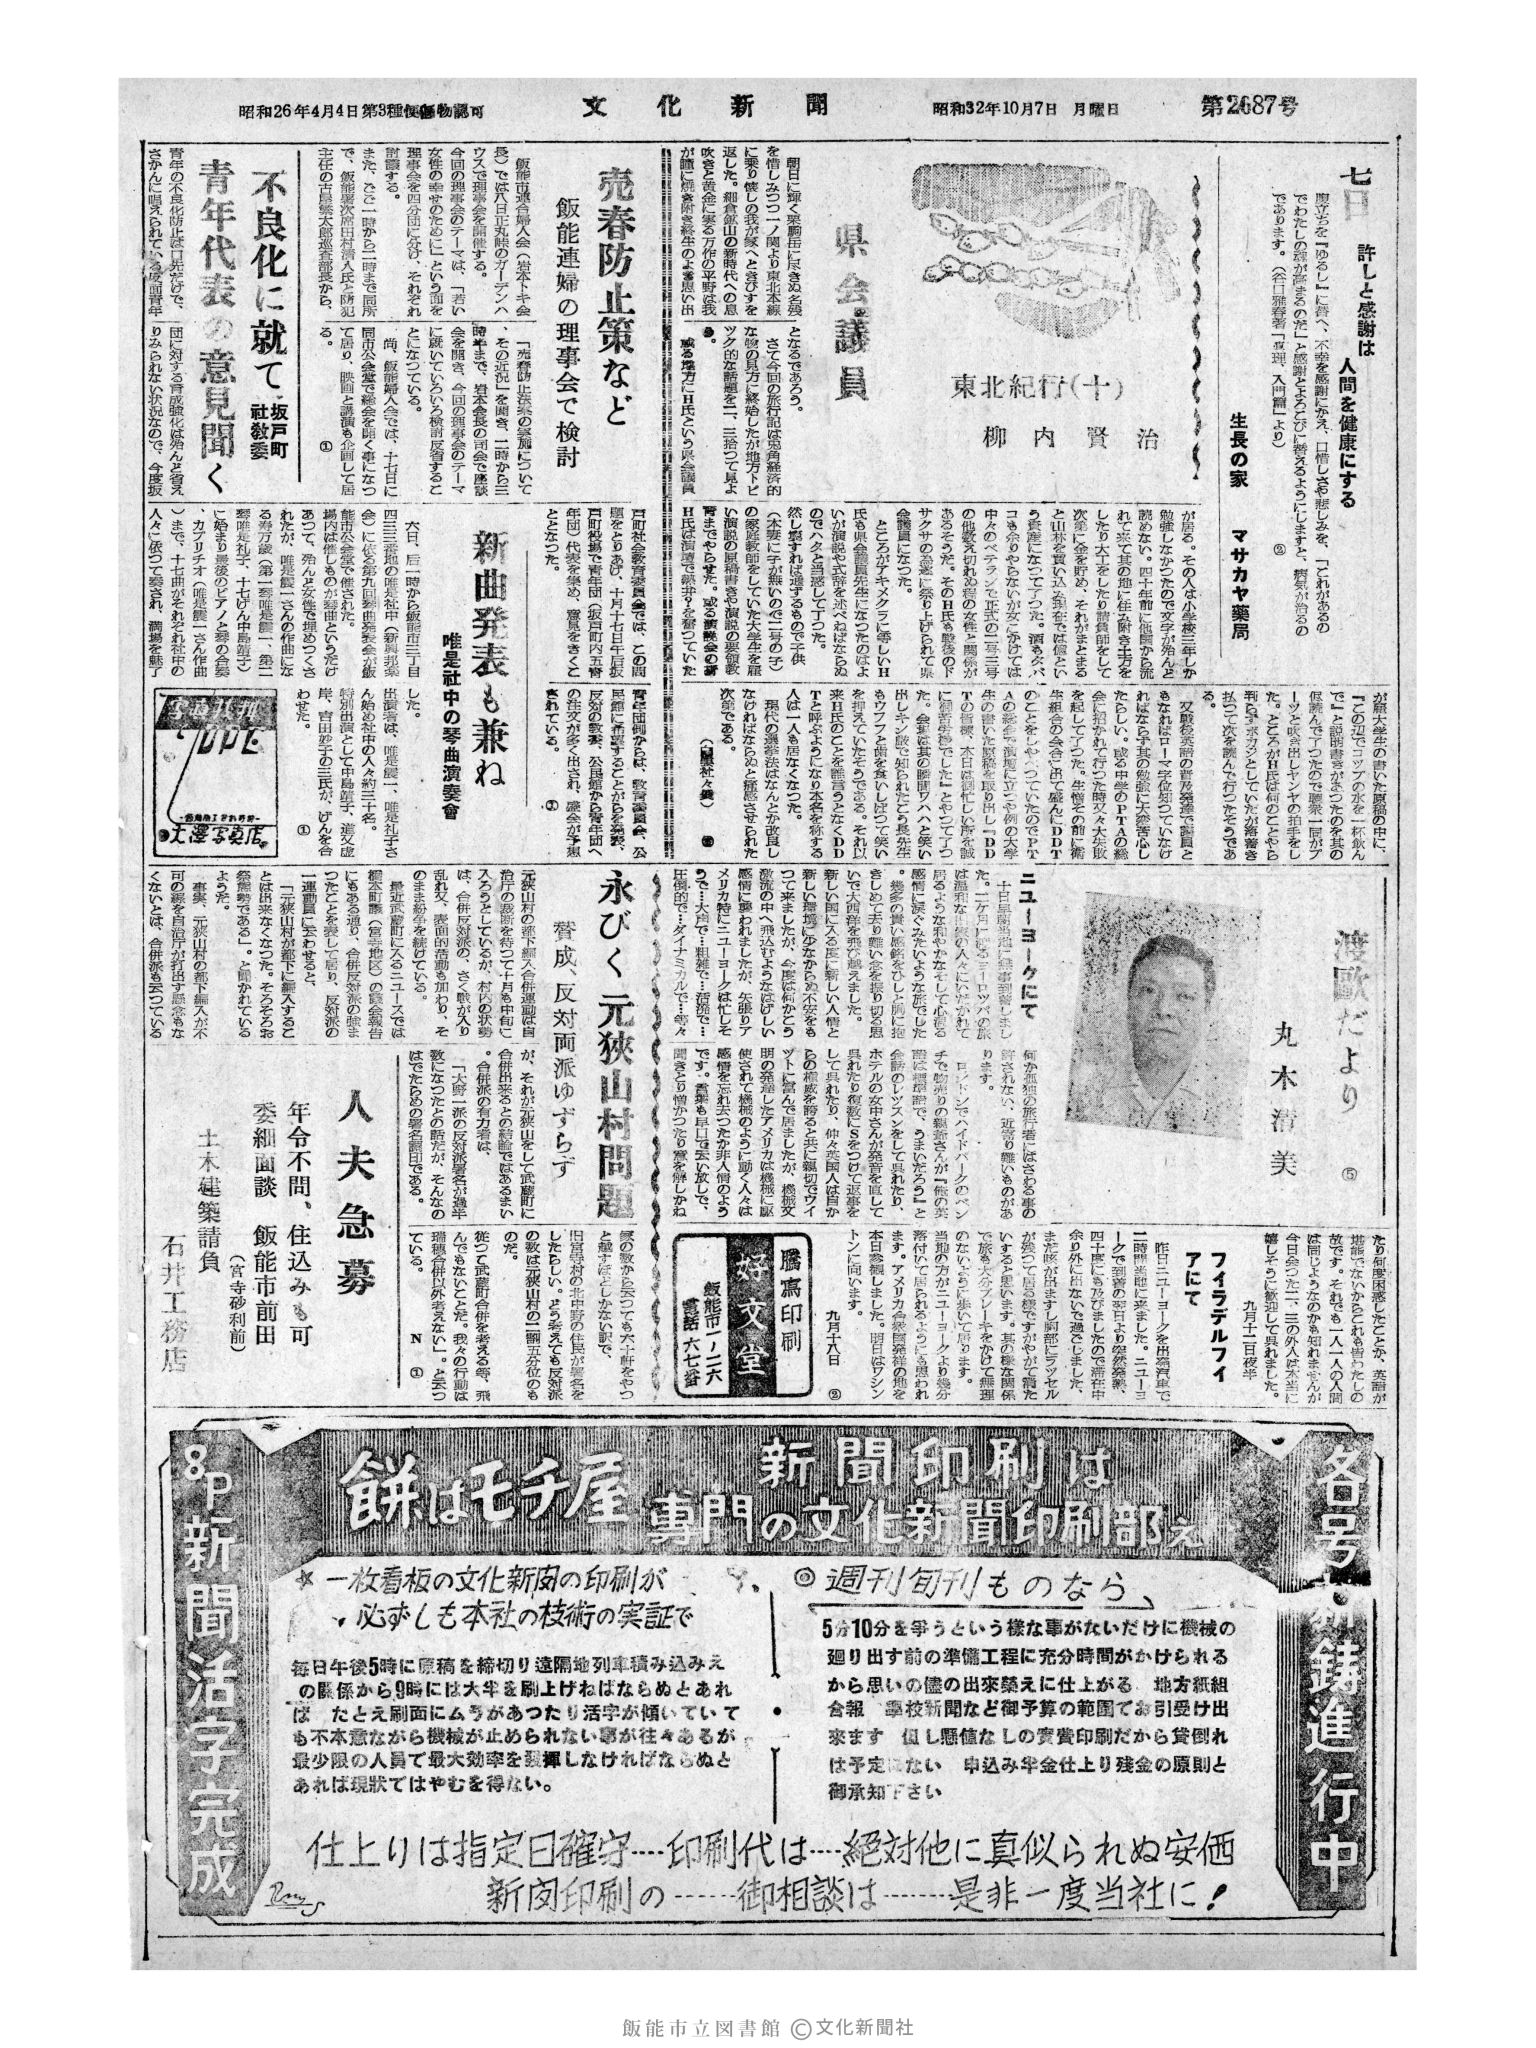 昭和26年4月4日第3種便郵物認可
文化新聞
昭和32年10月7日 月曜日
第2687号
七日
許しと感謝は
人間を健康にする
腹立ちを『ゆるし』に替へ、不幸を感謝にかえ、口惜しさや悲しみを、「これがあるの
でわたしの魂が高まるのだ」と感謝とよろこびに替えるようにしますと、病気が治るの
であります。(谷口雅春著「真理、入門篇」より)
生長の家 マサカヤ薬局
県会議員
東北紀行(十)
柳内賢治
朝日に輝く栗駒岳に尽きぬ名残
を惜しみつつ一ノ関より東北本線
に乗り懐しの我が家へときびすを
返した。細倉鉱山の新時代への息
吹きと黄金に実る万作の平野は我
が瞳に焼き附き終生のよき思い出
となるであろう。
さて今回の旅行記は兎角経済的
な物の見方に終始したが地方トピ
ツク的な話題を二、三拾つて見よ
う。
或る地方にH氏という県会議員
が居る。その人は小学校三年しか
勉強しなかつたので文字が殆んど
読めない。四十年前に他国から流
れて来て其の地に住み附き土方を
したり大工をしたり請負師をして
次第に金を貯め、それがまとまる
と山林を買い込み現在では億とい
う資産になつて了つた。酒もタバ
コも余りやらないが女にかけては
中々のベテランで正式の二号三号
の他数え切れぬ程の女性と関係が
あるそうだ。そのH氏も戦後のド
サクサの急進に祭り上げられて県
会議員になつた。
ところがアキメクラに等しいH
氏も県会議員先生になつたのはよ
いが演説や式辞を述べねばならぬ
のでハタと当惑して了つた。
然し窮すれば通ずるもので子供
(本妻に子が無いので二号の子)
の家庭教師をしていた大学生を雇
い演説の原稿書きや演説の要領教
育までやらせた。或る演説会の折
H氏は演壇で熱弁?を奮つていた
が雇大学生の書いた原稿の中に、
『この辺でコップの水を一杯飲ん
で』と説明書きがまつたのを其の
侭読んで了つたので聴衆一同がプ
ーツと吹き出しヤンヤの拍手をし
た。ところがH氏は何のことやら
判らずポカンとしていたが落着き
払つて次を読んで行つたそうであ
る。
又戦後英語の普及発達で議員と
もなればローマ字位知つていなけ
ればならず其の勉強に大変苦心し
たらしい。或る中学のPTAの総
会に招かれて行つた時又々大失敗
を起して了つた。生憎この前に衛
生組合の会合に出て盛んにDDT
のことをしやべつていたのでPT
Aの総会で演壇に立つや例の大学
生の書いた原稿を取り出し『DD
Tの皆様、本日は御忙しい所を誠
に御苦労様でした』とやつて了つ
た。会場は其の瞬間ワハハと笑い
出しキン嚴で知られたとう長先生
もウフフと歯を食いしばつて笑い
を抑えていたそうである。それ以
来H氏のことを誰言うとなくDD
Tと呼ぶようになり本名を称する
人は一人も居なくなつた。
現代の選挙法はなんとか改良し
なければならぬと痛感させられた
次第である。
売春防止策など
飯能連婦の理事会で検討
飯能市連合婦人会(岩本トキ会
長)では八日正丸峠のガーデンハ
ウスで理事会を開催する。
今回の理事会のテーマは、「若い
女性の幸せのために」という面を
理事会を四分団に分け、それぞれ
討議する。
また、ひる一時から二時まで同所
で、飯能署次席田村清人氏と防犯
主任の古屋繁太郎巡査部長から、
「売春防止法案の実施について
、その近況」を聞き、二時から三
時半まで、岩本会長の司会で座談
会を開き、今回の理事会のテーマ
に就いていろいろ検討反省するこ
とになつている。
尚、飯能婦人会では、十七日に
同市公会堂で総会を開く事になつ
て居り、映画と講演も企画して居
る。 ①
不良化に就て
青年代表の意見聞く
坂戸町
社教委
青年の不良化防止は口先だけで、
さかんに唱えられている反面青年
団に対する育成強化は殆んど省え
りみられない状況なので、今度坂
戸町社会教育委員会では、この問
題をとりあげ、十月十七日午后坂
戸町役場で青年団(坂戸町内五青
年団)代表を集め、意見をきくこ
ととなつた。
青年団側からは、教育委員会、公
民館に希望することがらを発表、
反対の教委、公民館から青年団へ
の注文が多く出され、盛会が予想
されている。 ①
新曲発表も兼ね
唯是社中の琴曲演奏會
六日、后一時から飯能市三丁目
四三三番地の唯是社中(新興邦楽
会)に依る第九回琴曲発表会が飯
能市公会堂で催された。
場内は催しものが琴曲というだけ
あつて、殆んど女性で埋めつくさ
れたが、唯是震一さんの作曲にな
る寿万歳(第一琴唯是震一、第二
琴唯是礼子、十七げん中島靖子)
に始まり最後のピアノと琴の合奏
、カプリチオ(唯是震一さん作曲
)まで、十七曲がそれぞれ社中の
人々に依つて奏され、満場を魅了
した。
出演者は、唯是震一、唯是礼子さ
ん始め社中の人々約三十名。
特別出演として中島靖子、道又虚
岸、宮田妙子の三氏が、げんを合
わせた。 ①
写真材料
DPE
大澤写真店
渡歐だより ⑤
丸木清美
ニューヨークにて
十日早朝当地に無事到着しまし
た。二ケ月に渡るヨーロツパの旅
は温和な世界の人々にいだかれて
居るような和やかなそして心温る
感情に涙ぐみたいような旅でした
。幾多の貴い感銘をひしと胸に抱
きしめて去り難い念を振り切る思
いで大西洋を飛び越えました。
新しい国に入る度に新しい人情と
新しい環境に少なからぬ不安をも
つて来ましたが、今度は何かこう
激流の中へ飛込むようなはげしい
感情に襲われましたが、矢張りア
メリカ特にニューヨークは忙しそ
うで…大声で…粗雑で…活溌で…
圧倒的で…ダイナミカルで…等々
何か孤独の旅行者にはさわる事の
許されない、近寄り難いものがあ
ります。
ロンドンでハイドパークのペン
チで物売りの親爺さんが『俺の英
語は標準語で、うまいだろう』と
会話のレツスンをして呉れたり、
ホテルの女中さんが発音を直して
呉れたり複数にSをつけて返事を
して呉れたり、仲々英国人は自か
らの権威を誇ると共に親切でウイ
ツトに富んで居ましたが、機械文
明の発達したアメリカは機械に駆
使されて機械のように動く人々は
感情を忘れ去つたか非人情のよう
です。言葉も早口で云い放しで、
聞きとり憎かつたり意を解しかね
たり何度困惑したことか、英語が
堪能でないからこれも皆わたしの
故です。それでも一人一人の人間
は同じようなのかも知れませんが
今日会つた二、三の外人は本当に
嬉しそうに歓迎して呉れました。
九月十二日夜半
フイラデルフイ
アにて
昨日ニューヨークを出発汽車で
二時間当地に来ました。ニューヨ
ークで到着の翌日より突然発熱、
四十度にも及びましたので滞在中
余り外に出ないで過ごしました、
まだ咳が出ますし胸部にラッセル
が残つて居る様ですがやがて治た
いすると思います。其の様な関係
で旅も大分ブレーキをかけて無理
のないように歩いて居ります。
当地の方がニューヨークより幾分
落付いて居られるようにも思われ
ます。アメリカ合衆国発祥の地を
本日参観しました。明日はワシン
トンに向います。
九月十八日 ②
謄寫印刷
好文堂
飯能市一ノ二六
電話 六七番
永びく元狹山村問題
賛成、反対両派ゆずらず
元狭山村の都下編入合併運動は自
治庁の裁断を待つて十月も中旬に
入ろうとしているが、村内の状勢
は、合併反対派の、さく戦が入り
乱れ又、表面的活動も加わり、そ
のまま紛争を続けている。
最近武蔵町に入るニュースでは
橋本町議(宮寺地区)の議会報告
にもある通り、合併反対派の強ま
つたことを表して居り、反対派の
一運動員に云わせると、
「元狭山村が都下に編入するこ
とは出来なくなつた。そろそろお
祭態勢である」。と聞かれている
ようだ。
事実、元狭山村の都下編入が不
可の線を自治庁が打出す懸念もな
くないとは、合併派も云つている
が、それが元狭山をして武蔵町に
合併出来るとの結論ではあるまい
。合併派の有力者は、
「大野一派の反対派署名が過半
数になつたとの話だが、そんなの
はでたらめの署名調印である。
家の数から云つても六十軒をやつ
と越すほどしかない訳で、
旧宮寺村の北中野の住民が署名を
したらしい。どう考えても反対派
の数は元狭山村の二割五分位のも
のだ。
従つて武蔵町合併を考える等、飛
んでもないことだ。我々の行動は
瑞穂合併以外考えない」。と云つ
ている。 N ①
人夫急募
年令不問、住込みも可
委細面談 飯能市前田
(宮寺砂利前)
土木建築請負
石井工務店
各号 新鋳進行中
新聞印刷は
専門の文化新聞印刷部え
餅はモチ屋
8P新聞活字完成
◎週刊旬刊ものなら、
5分10分を争うという様な事がないだけに機械の
廻り出す前の準備工程に充分時間がかけられる
から思いの儘の出来栄えに仕上がる 地方紙組
合報 學校新聞など御予算の範囲でお引受け出
来ます 但し懸値なしの実費印刷だから貸倒れ
は予定にない 申込み半金仕上り残金の原則と
御承知下さい
☆一枚看板の文化新聞の印刷が
必ずしも本社の技術の実証で
毎日午後5時に原稿を締切り遠隔地列車積み込みえ
の関係から9時には大半を刷上げねばならぬとあれ
ば たとえ刷面にムラがあつたり活字が傾いていて
も不本意ながら機械が止められない事が往々あるが
最少限の人員で最大効率を発揮しなければならぬと
あれば現状ではやむを得ない。
仕上りは指定日確守……印刷代は……絶対他に真似られぬ安価
新聞印刷の………御相談は………是非一度当社に!
飯能市立図書館 ©文化新聞社